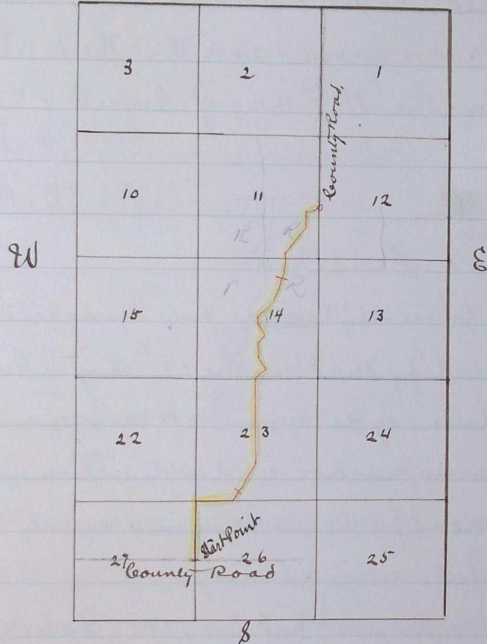 3 2 1
County Road
10 11 12
W E
15 14 13
22 23 24
Start Point
27 26 25
County Road
S